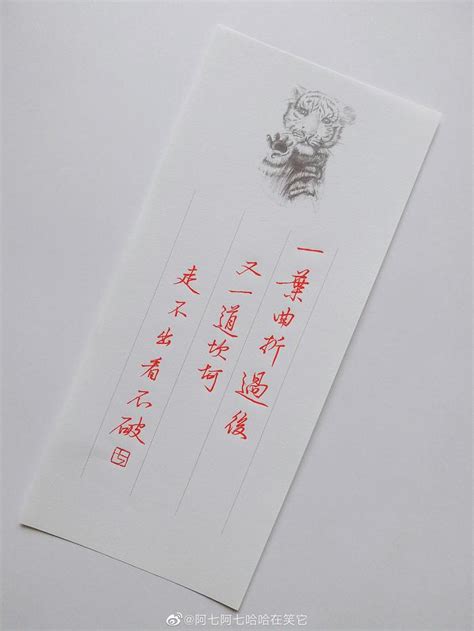 一葉曲折過後
又一道坎坷
走不出看不破
七
@阿七阿七哈哈在笑它